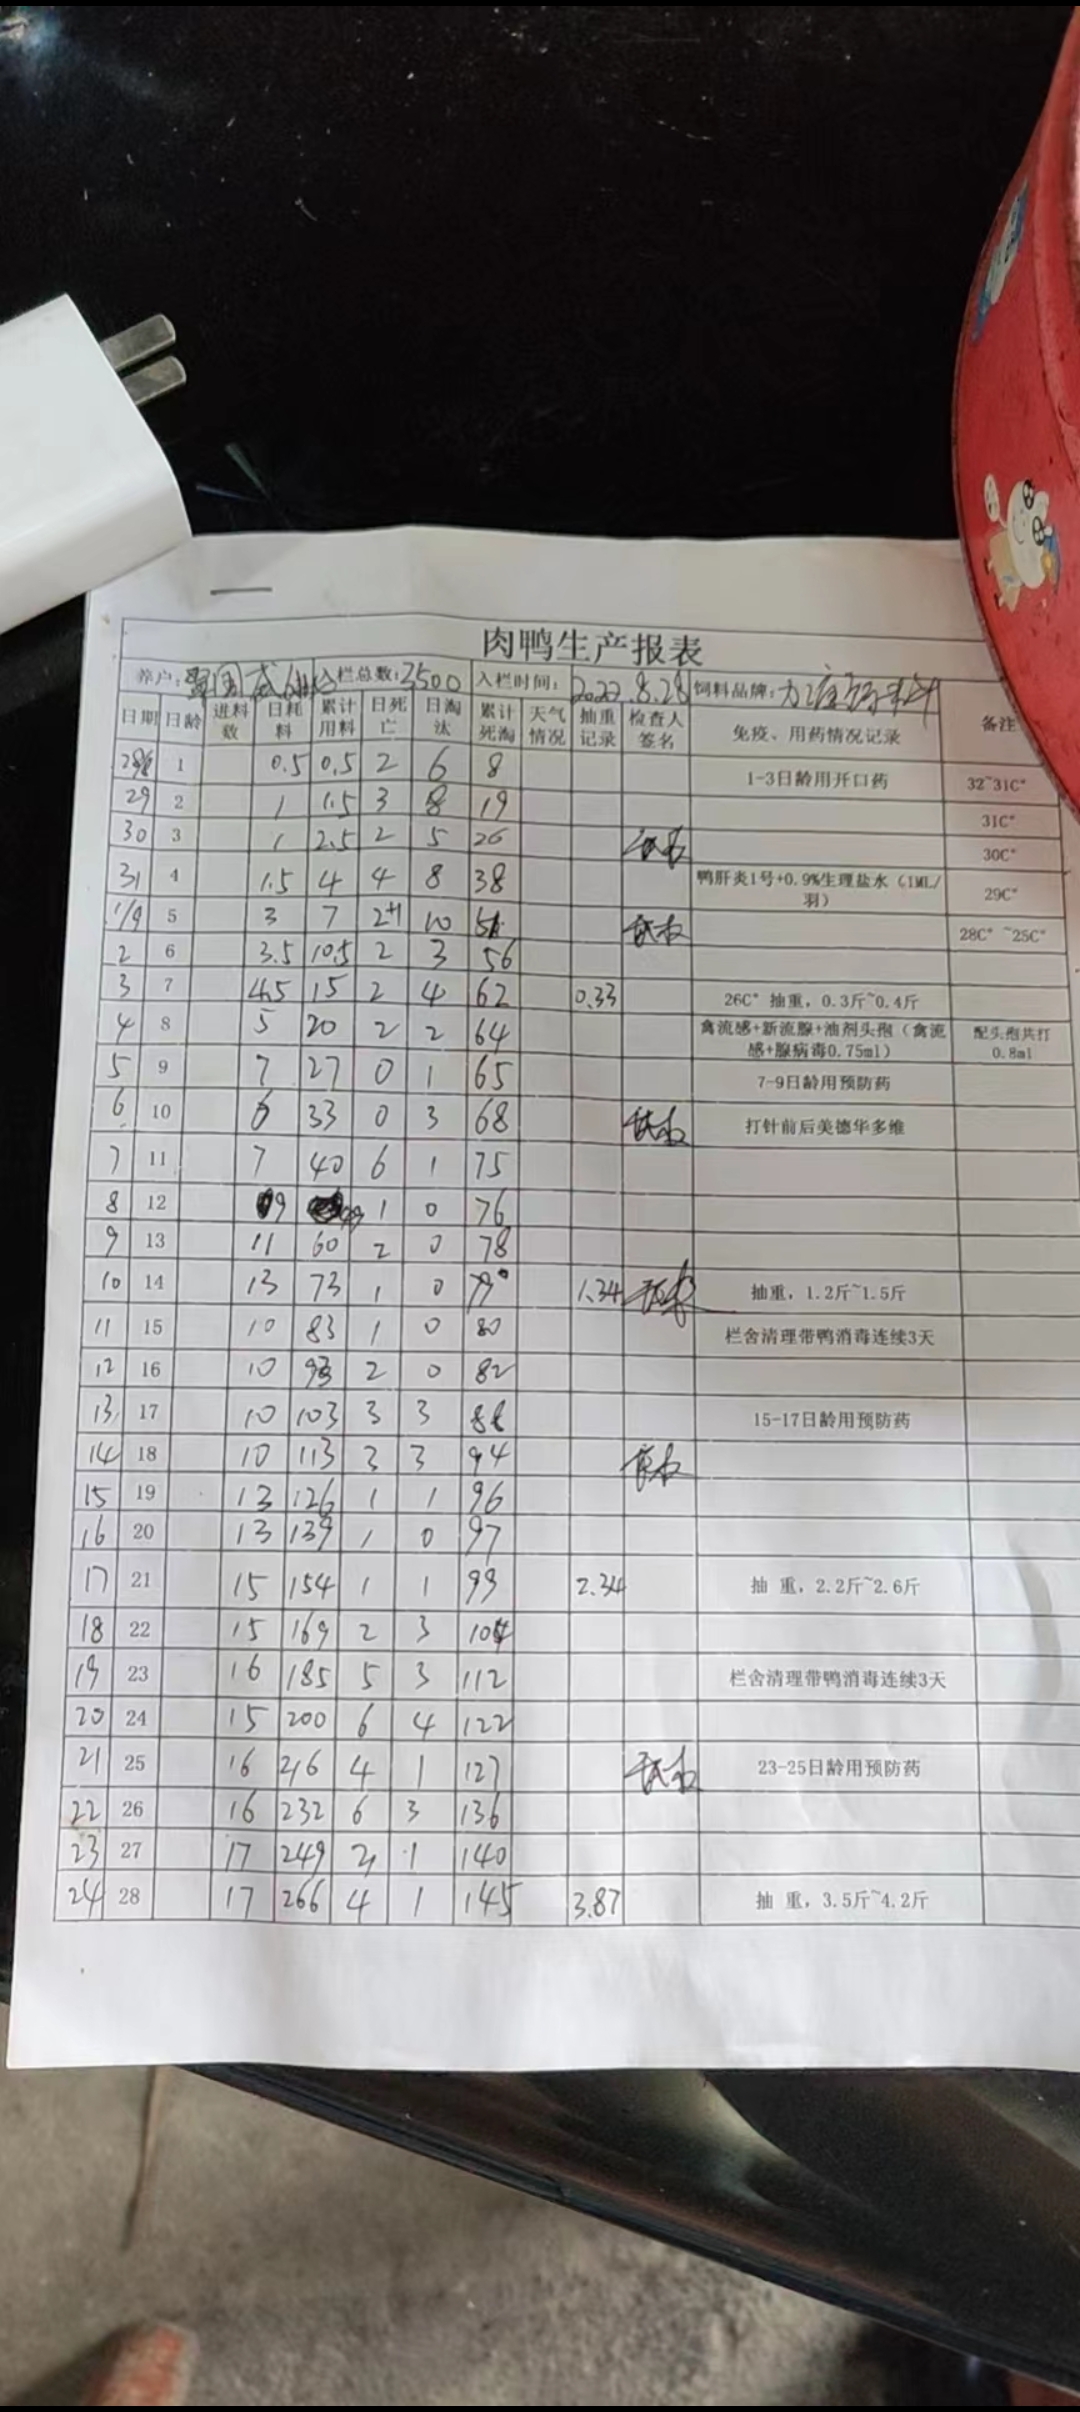 肉鸭生产报表
养户: 入栏总数:3500 入栏时间: 2022.8.28 饲料品牌:
日期 日龄 进料数 日耗料 累计用料 日死亡 日淘汰 累计死淘 天气情况 抽重记录 检查人签名 免疫、用药情况记录 备注
28 1 0.5 0.5 2 6 8 1-3日龄用开口药 32~31C°
29 2 1 1.5 3 8 19 31C°
30 3 1 2.5 2 5 26 30C°
31 4 1.5 4 4 8 38 鸭肝炎1号+0.9%生理盐水（1ML/羽） 29C°
1/9 5 3 7 2+1 10 51 28C°~25C°
2 6 3.5 10.5 2 3 56
3 7 4.5 15 2 4 62 0.33 26C°抽重，0.3斤~0.4斤
4 8 5 20 2 2 64 禽流感+新流腺+油剂头孢（禽流感+腺病毒0.75ml） 配头孢共打0.8ml
5 9 7 27 0 1 65 7-9日龄用预防药
6 10 6 33 0 3 68 打针前后美德华多维
7 11 7 40 6 1 75
8 12 9 49 1 0 76
9 13 11 60 2 0 78
10 14 13 73 1 0 79 1.34 抽重，1.2斤~1.5斤
11 15 10 83 1 0 80 栏舍清理带鸭消毒连续3天
12 16 10 93 2 0 82
13 17 10 103 3 3 88 15-17日龄用预防药
14 18 10 113 3 3 94
15 19 13 126 1 1 96
16 20 13 139 1 0 97
17 21 15 154 1 1 99 2.34 抽 重，2.2斤~2.6斤
18 22 15 169 2 3 104
19 23 16 185 5 3 112 栏舍清理带鸭消毒连续3天
20 24 15 200 6 4 122
21 25 16 216 4 1 127 23-25日龄用预防药
22 26 16 232 6 3 136
23 27 17 249 1 140
24 28 17 266 4 1 145 3.87 抽 重，3.5斤~4.2斤